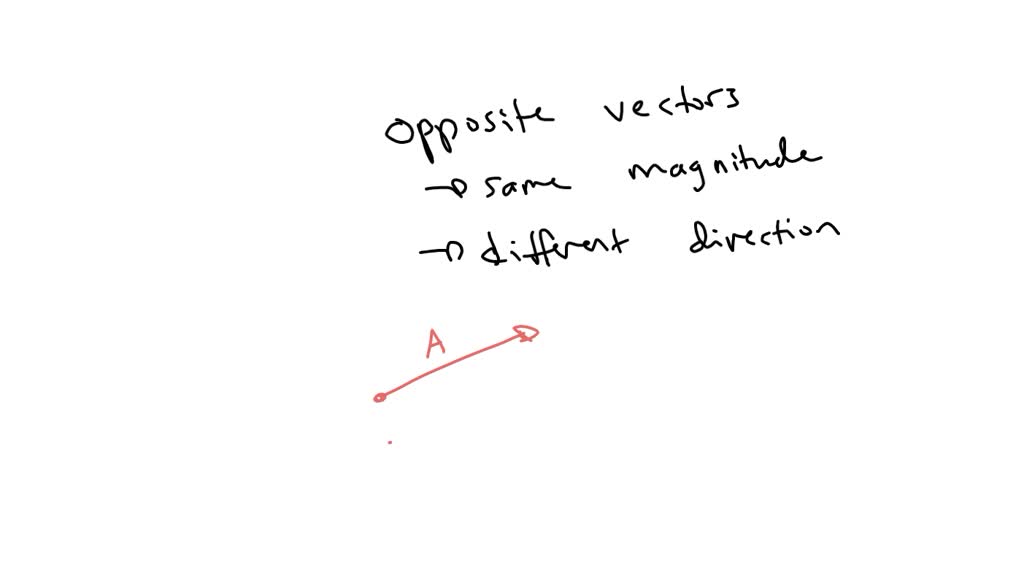 opposite vectors
→ same magnitude
→ different direction
A